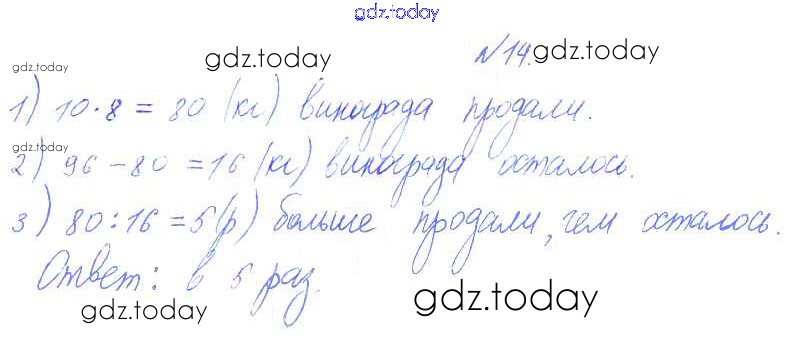 gdz.today
№14.
gdz.today
gdz.today
gdz.today
1) 10·8 = 80 (кг) винограда продали.
2) 96 - 80 = 16 (кг) винограда осталось.
3) 80:16 = 5(р) больше продали, чем осталось.
Ответ: в 5 раз.
gdz.today
gdz.today